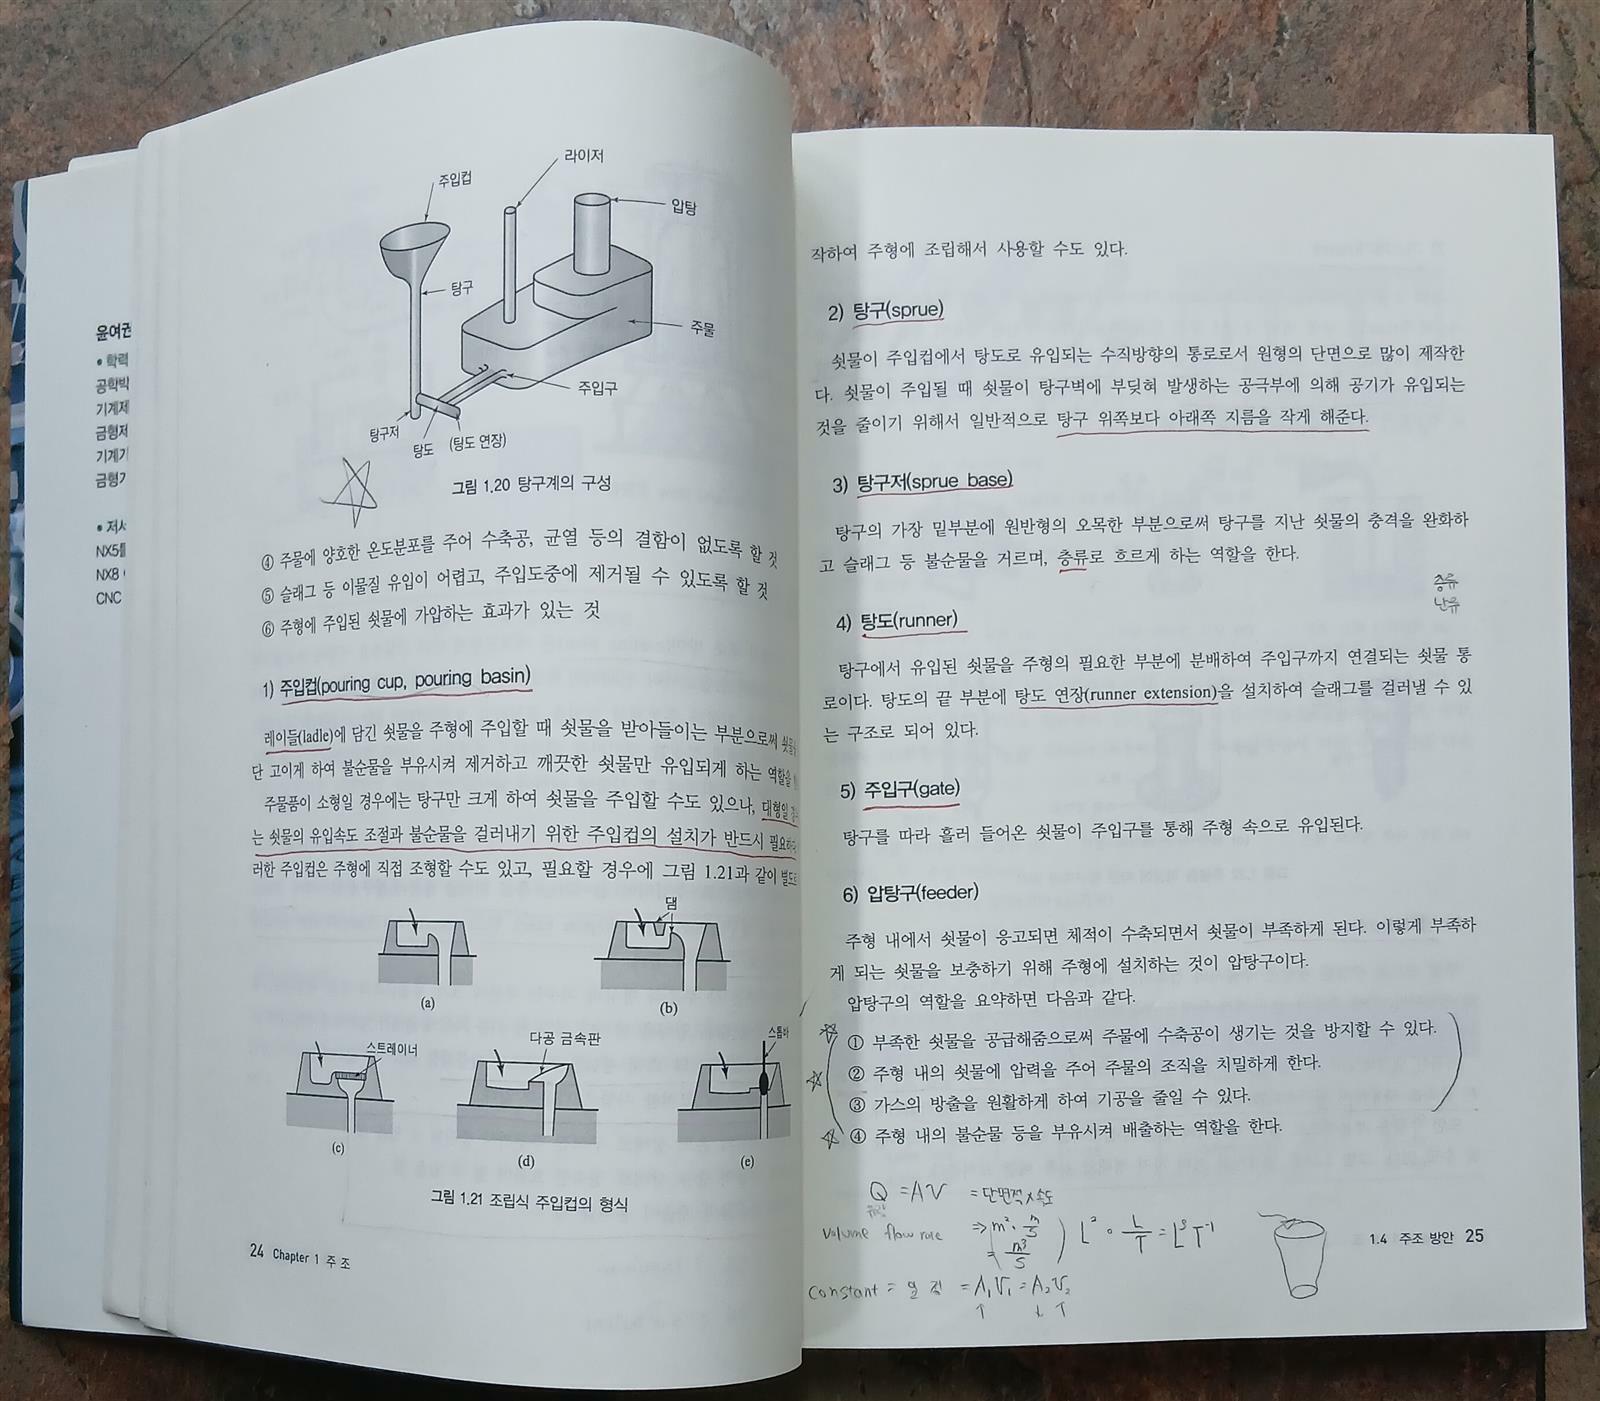 윤여권
• 학력
공학박
기계제
금형저
기계기
금형기
• 저서
NX5를
NX8
CNC
라이저
주입컵
압탕
탕구
주물
주입구
탕구저
탕도
(탕도 연장)
그림 1.20 탕구계의 구성
④ 주물에 양호한 온도분포를 주어 수축공, 균열 등의 결함이 없도록 할 것
⑤ 슬래그 등 이물질 유입이 어렵고, 주입도중에 제거될 수 있도록 할 것
⑥ 주형에 주입된 쇳물에 가압하는 효과가 있는 것
1) 주입컵(pouring cup, pouring basin)
레이들(ladle)에 담긴 쇳물을 주형에 주입할 때 쇳물을 받아들이는 부분으로써 쇳물
단 고이게 하여 불순물을 부유시켜 제거하고 깨끗한 쇳물만 유입되게 하는 역할을
주물품이 소형일 경우에는 탕구만 크게 하여 쇳물을 주입할 수도 있으나, 대형일
는 쇳물의 유입속도 조절과 불순물을 걸러내기 위한 주입컵의 설치가 반드시 필요하
러한 주입컵은 주형에 직접 조형할 수도 있고, 필요할 경우에 그림 1.21과 같이 별도
댐
(a)
(b)
스트레이너
다공 금속판
스톱바
(c)
(d)
(e)
그림 1.21 조립식 주입컵의 형식
24 Chapter 1 주 조
작하여 주형에 조립해서 사용할 수도 있다.
2) 탕구(sprue)
쇳물이 주입컵에서 탕도로 유입되는 수직방향의 통로로서 원형의 단면으로 많이 제작한
다. 쇳물이 주입될 때 쇳물이 탕구벽에 부딪혀 발생하는 공극부에 의해 공기가 유입되는
것을 줄이기 위해서 일반적으로 탕구 위쪽보다 아래쪽 지름을 작게 해준다.
3) 탕구저(sprue base)
탕구의 가장 밑부분에 원반형의 오목한 부분으로써 탕구를 지난 쇳물의 충격을 완화하
고 슬래그 등 불순물을 거르며, 층류로 흐르게 하는 역할을 한다.
층류
난류
4) 탕도(runner)
탕구에서 유입된 쇳물을 주형의 필요한 부분에 분배하여 주입구까지 연결되는 쇳물 통
로이다. 탕도의 끝 부분에 탕도 연장(runner extension)을 설치하여 슬래그를 걸러낼 수 있
는 구조로 되어 있다.
5) 주입구(gate)
탕구를 따라 흘러 들어온 쇳물이 주입구를 통해 주형 속으로 유입된다.
6) 압탕구(feeder)
주형 내에서 쇳물이 응고되면 체적이 수축되면서 쇳물이 부족하게 된다. 이렇게 부족하
게 되는 쇳물을 보충하기 위해 주형에 설치하는 것이 압탕구이다.
압탕구의 역할을 요약하면 다음과 같다.
① 부족한 쇳물을 공급해줌으로써 주물에 수축공이 생기는 것을 방지할 수 있다.
② 주형 내의 쇳물에 압력을 주어 주물의 조직을 치밀하게 한다.
③ 가스의 방출을 원활하게 하여 기공을 줄일 수 있다.
④ 주형 내의 불순물 등을 부유시켜 배출하는 역할을 한다.
Q = AV = 단면적 × 속도
유량
volume flow rate ⇒ (m²· m/s = m³/s) L² · L/T = L³T⁻¹
constant = 일정 = A₁V₁ = A₂V₂
↑ ↓ ↑
1.4 주조 방안 25